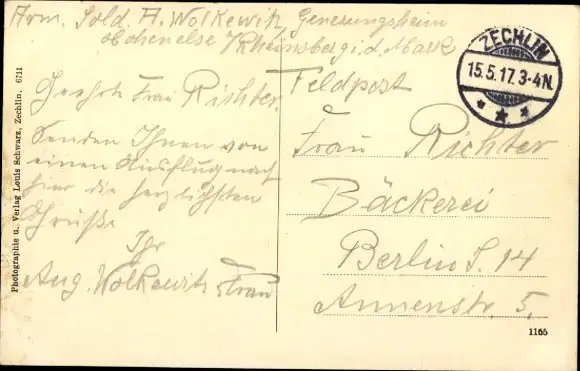 Arm. Sold. A. Wolkewitz, Genesungsheim
Hohenelse b/Rheinsberg i. d. Mark
Feldpost
ZECHLIN
15.5.17. 3-4N.
Geehrte Frau Richter.
Senden Ihnen von
einen Ausflug nach
hier die herzlichsten
Grüße
Ihr
Aug. Wolkewitz u Frau
Frau Richter
Bäckerei
Berlin S. 14
Annenstr. 5.
Photographie u. Verlag Louis Schwarz, Zechlin. 6711
1165